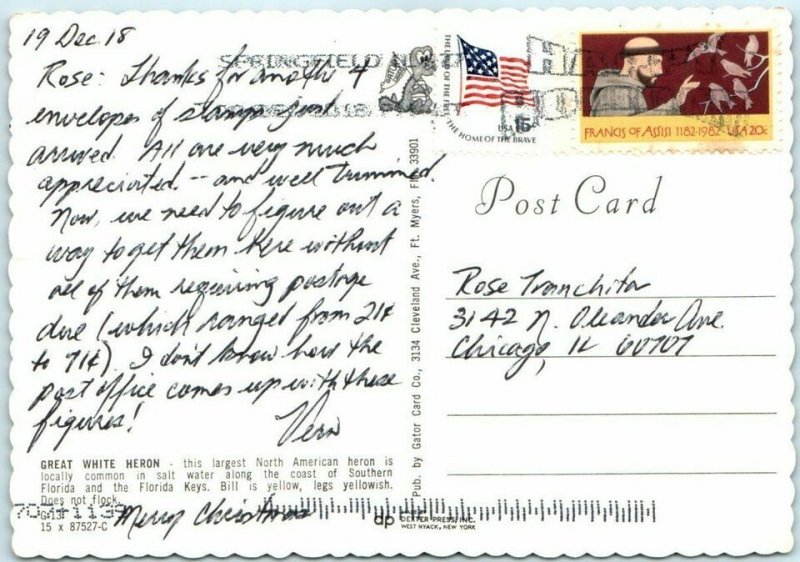 19 Dec. 18
Rose: Thanks for another 4
envelopes of stamps just
arrived. All are very much
appreciated -- and well trimmed.
Now, we need to figure out a
way to get them here without
all of them requiring postage
due (which ranged from 21¢
to 71¢). I don't know how the
post office comes up with these
figures!
Vern
GREAT WHITE HERON - this largest North American heron is
locally common in salt water along the coast of Southern
Florida and the Florida Keys. Bill is yellow, legs yellowish.
Does not flock.
15 x 87527-C
Merry Christmas
Pub. by Gator Card Co., 3134 Cleveland Ave., Ft. Myers, Fla. 33901
SPRINGFIELD
THE LAND OF THE FREE
THE HOME OF THE BRAVE
USA 15c
FRANCIS OF ASSISI 1182-1982 USA 20c
Post Card
Rose Tranchita
3142 N. Oleander Ave
Chicago, IL 60707
dp DEXTER PRESS, INC.
WEST NYACK, NEW YORK